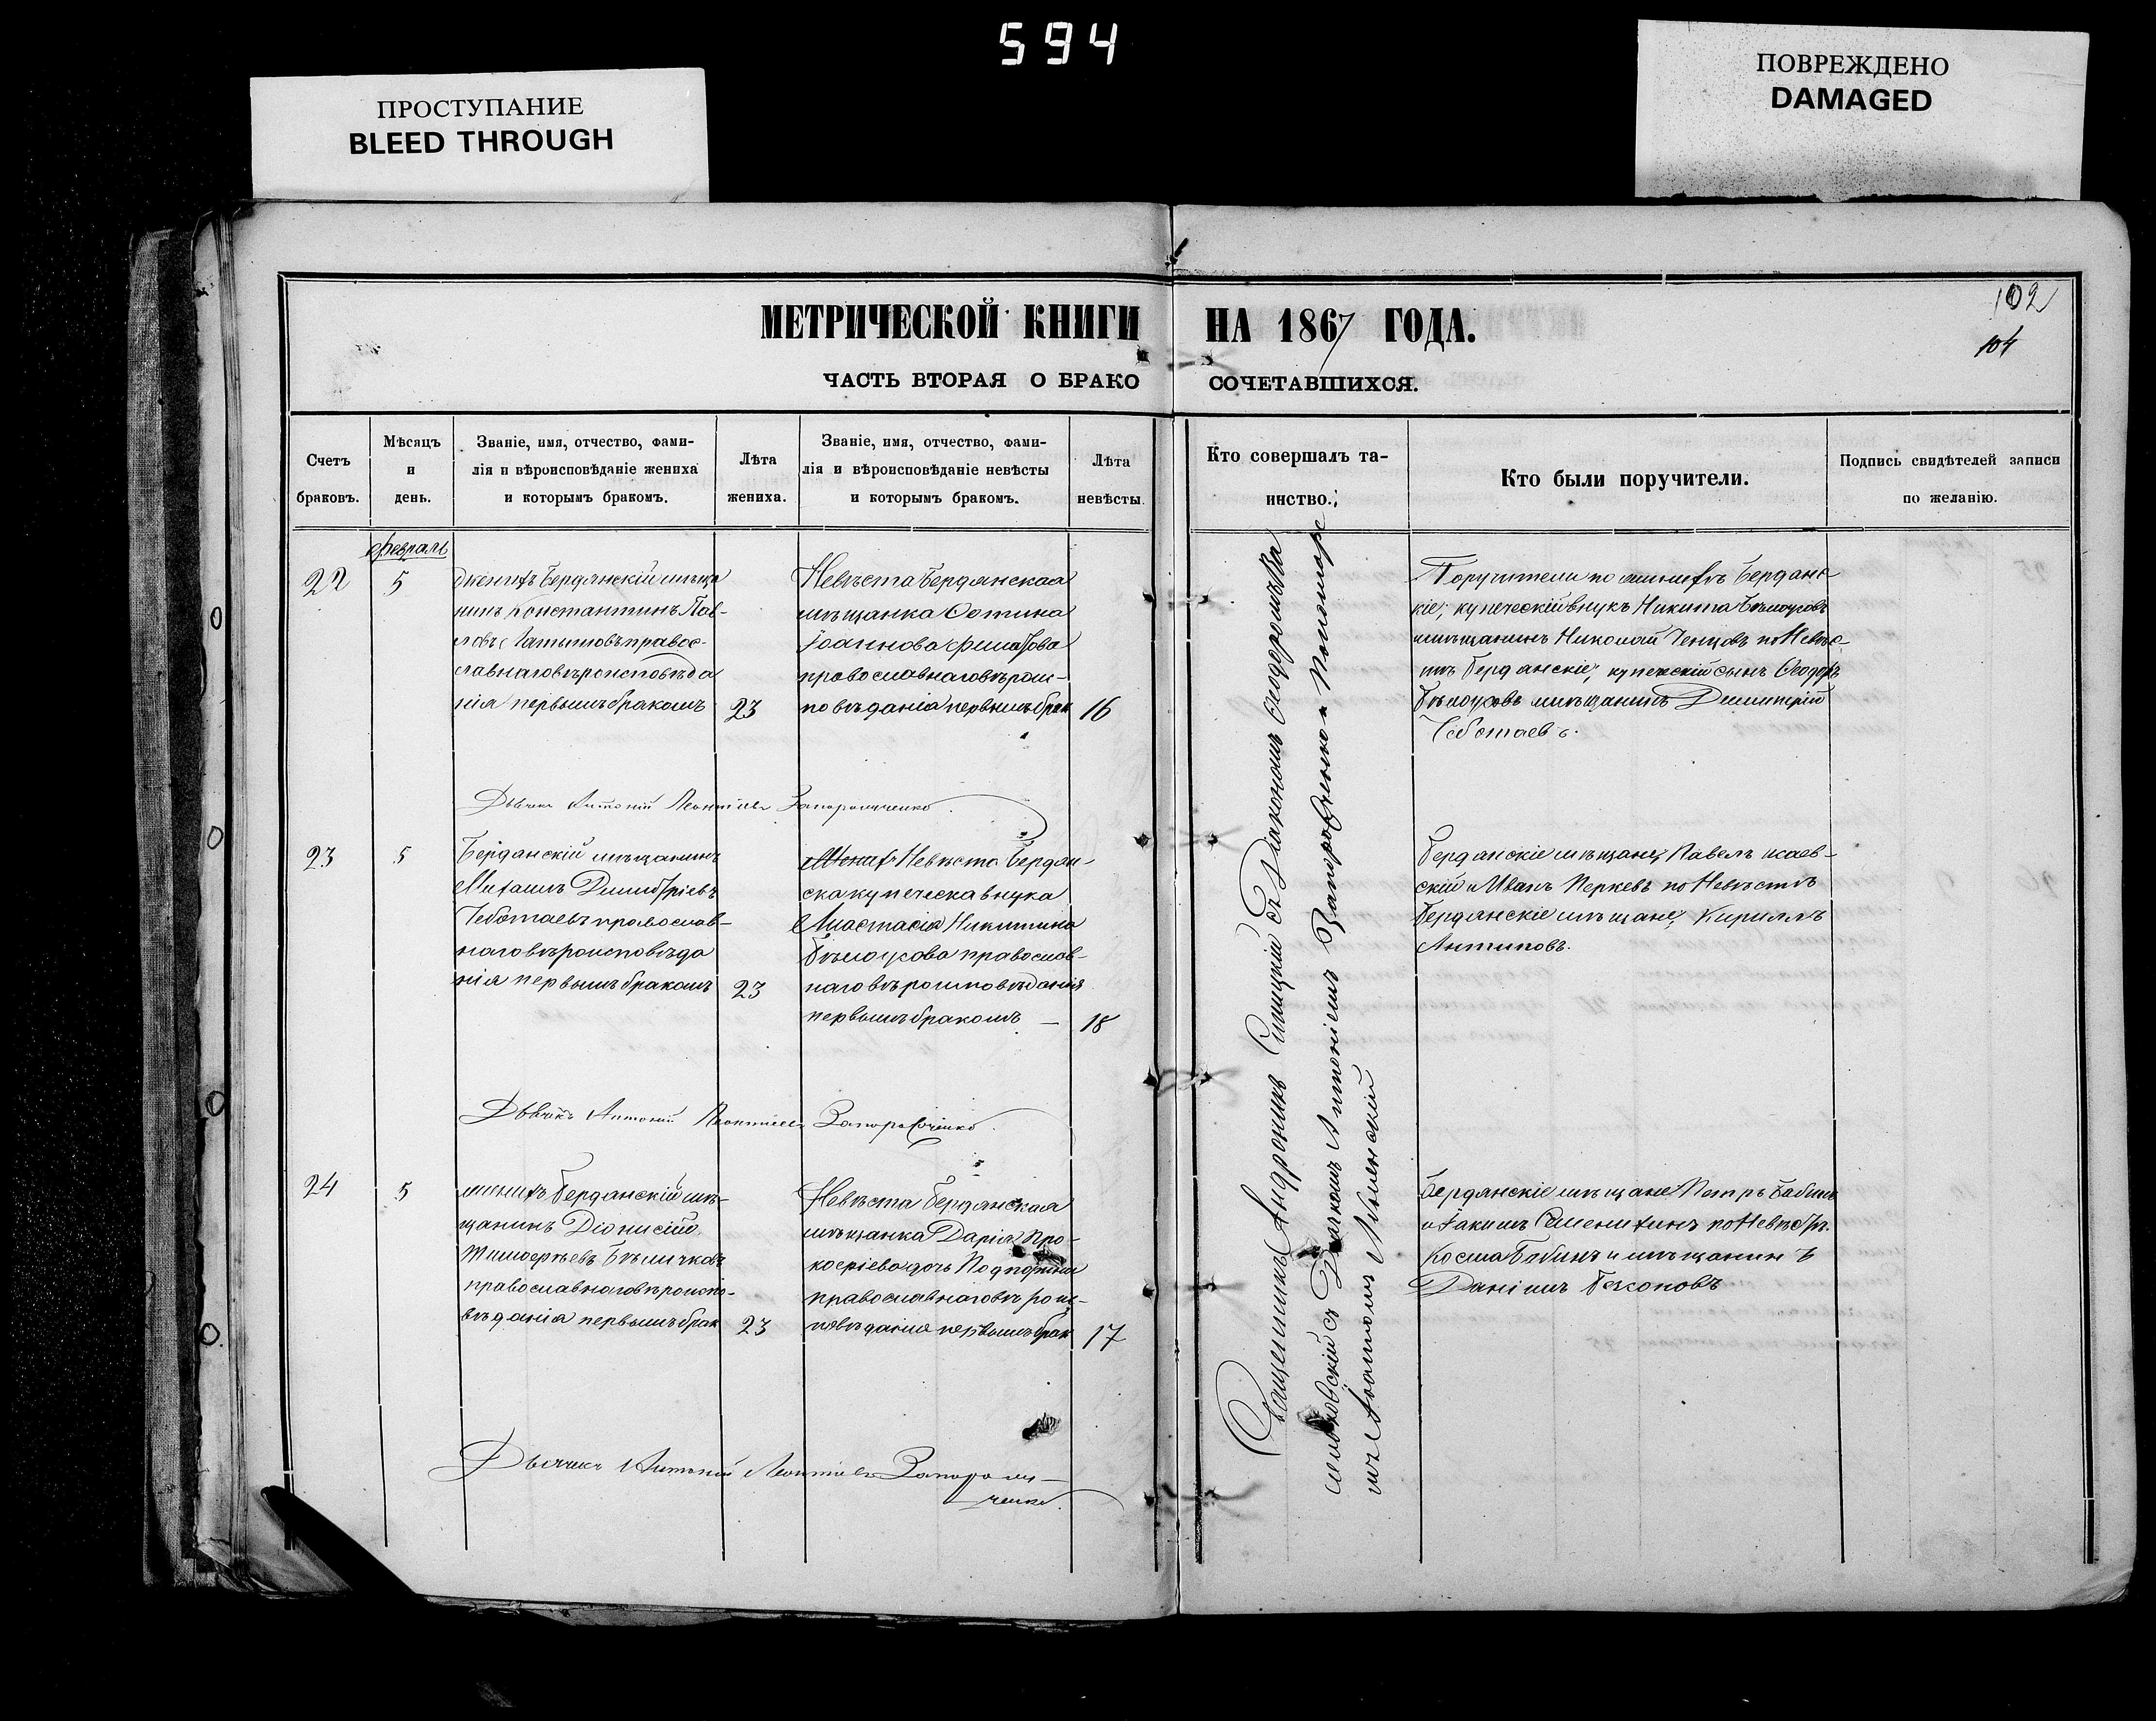 594
ПРОСТУПАНИЕ
BLEED THROUGH
ПОВРЕЖДЕНО
DAMAGED
102
104
МЕТРИЧЕСКОЙ КНИГИ НА 1867 ГОДА.
ЧАСТЬ ВТОРАЯ О БРАКО СОЧЕТАВШИХСЯ.
Счетъ
браковъ.
Мѣсяцъ
и
день.
Званіе, имя, отчество, фами-
лія и вѣроисповѣданіе жениха
и которымъ бракомъ.
Лѣта
жениха.
Званіе, имя, отчество, фами-
лія и вѣроисповѣданіе невѣсты
и которымъ бракомъ.
Лѣта
невѣсты.
Кто совершалъ та-
инство.
Кто были поручители.
Подпись свидѣтелей записи
по желанію.
Февраль
22
5
Женихъ Бердянскій мѣща
нинъ Константинъ Пав-
ловъ правос-
лавнаго вѣроисповѣда
нія первымъ бракомъ
23
Невѣста Бердянская
мѣщанка Фотина
Іоаннова Филатова
православнаго вѣроис-
повѣданія первымъ брак
16
Поручители по женихѣ Бердянс-
кіе; купеческій внукъ Никита Бѣлоусовъ
мѣщанинъ Николай Ченцовъ по Невѣс-
тѣ Бердянскіе, купеческій сынъ Ѳеодоръ
Бѣлоусовъ мѣщанинъ Димитрій
Чеботаевъ.
Дьячекъ Антоній Леонтіевъ Запорожченко.
23
5
Бердянскій мѣщанинъ
Михаилъ Димитріевъ
Чеботаевъ православ-
наго вѣроисповѣда
нія первымъ бракомъ
23
Невѣста Бердян-
ска купеческа внука
Анастасія Никитина
Бѣлоусова православ-
наго вѣроисповѣданія
первымъ бракомъ —
18
Бердянскіе мѣщане, Павелъ Исаев-
скій и Иванъ Перкевъ по Невѣстѣ
Бердянскіе мѣщане, Кириллъ
Антиповъ.
Дьячекъ Антоній Леонтіевъ Запорожченко.
24
5
женихъ Бердянскій мѣ-
щанинъ Діонисій
Тимоѳѣевъ Бѣличковъ
православнаго вѣроиспо-
вѣданія первымъ брак
23
Невѣста Бердянская
мѣщанка Дарія Про-
кофіева дочь
православнаго вѣроис-
повѣданія первымъ брак
17
Бердянскіе мѣщане Петръ Бабинъ
и Іакимъ Семенихинъ по Невѣстѣ.
Косма Бабинъ и мѣщанинъ
Даніилъ
Дьячекъ Антоній Леонтіевъ Запорож-
ченко.
Священникъ Андроникъ Силицкій съ Діакономъ
съ Дьячкомъ Антоніемъ Запорожченко и Пономаре
мъ